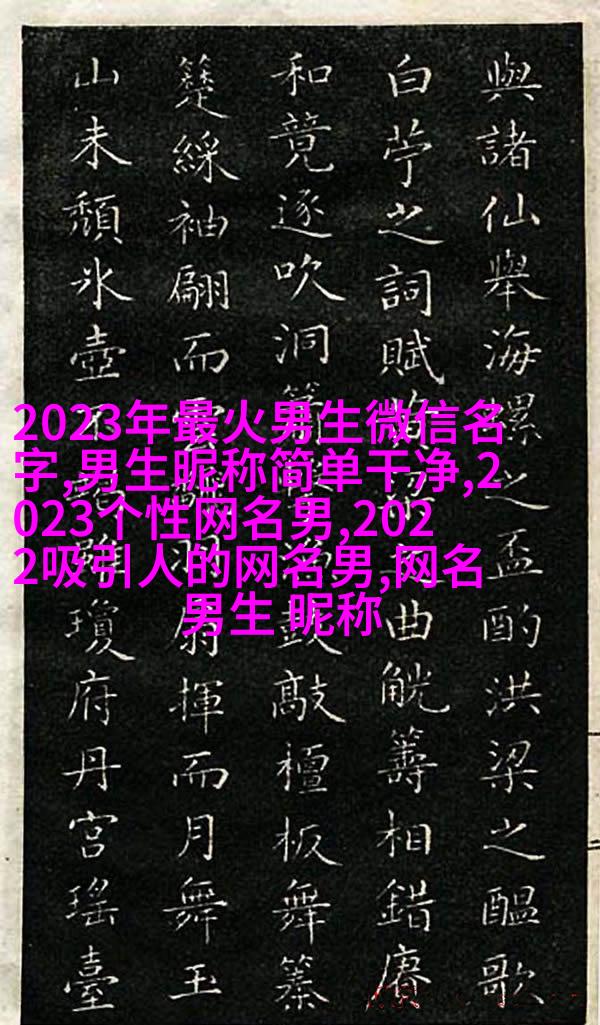 與諸仙舉海螺之盃酌洪梁之醞歌
白苧之詞賦之曲觥籌相錯賡
和竟逐吹洞簫鼓敲檀板舞
綵袖翩而雲羽扇揮而月舞玉
山未頹氷壺不雖瓊府丹宮瑤臺
2023年最火男生微信名
字,男生昵称简单干净,2
023个性网名男,202
2吸引人的网名男,网名
男生 昵称